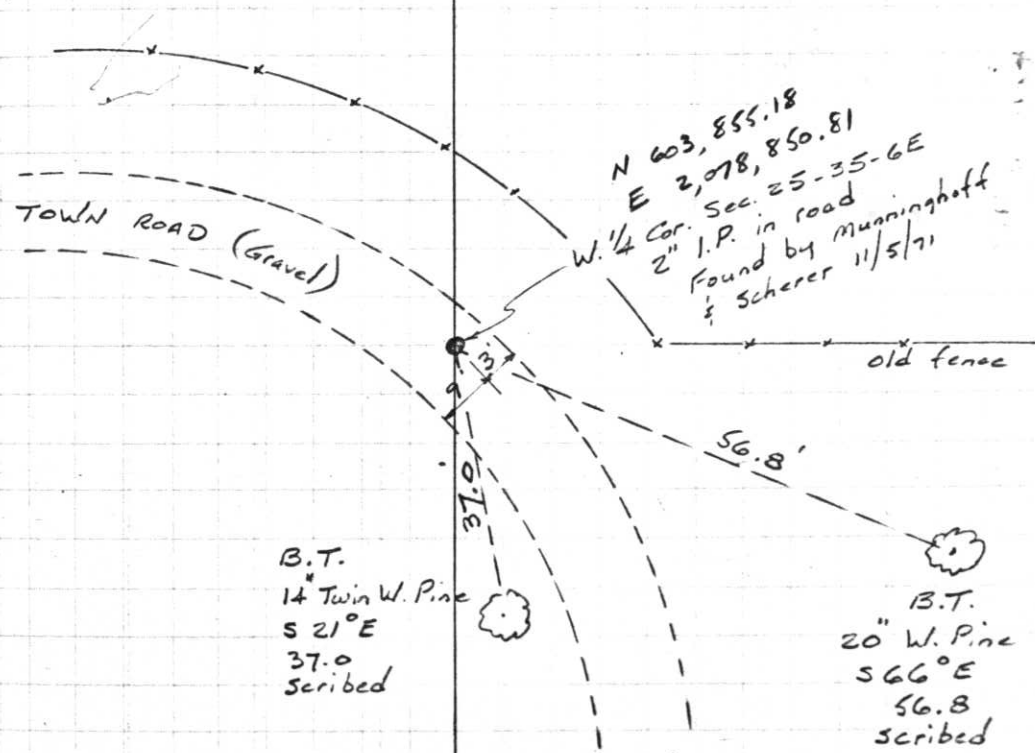 N 603,855.18
E 2,078,850.81
W. 1/4 Cor. Sec. 25-35-6E
2" I.P. in road
Found by Munninghoff
& Scherer 11/5/71
TOWN ROAD (Gravel)
old fence
3
9
56.8'
37.0
B.T.
14" Twin W. Pine
S 21° E
37.0
Scribed
B.T.
20" W. Pine
S 66° E
56.8
scribed